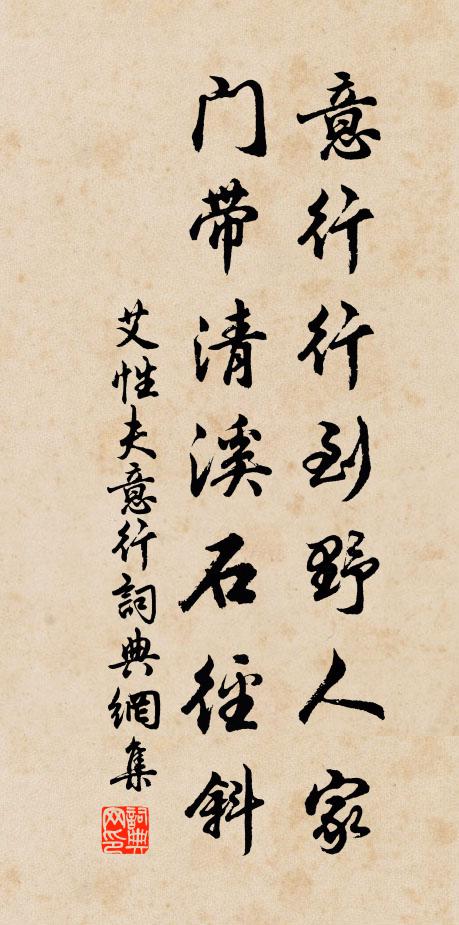 意行行到野人家
门带清溪石径斜
艾性夫意行詞典網集
詞典网印